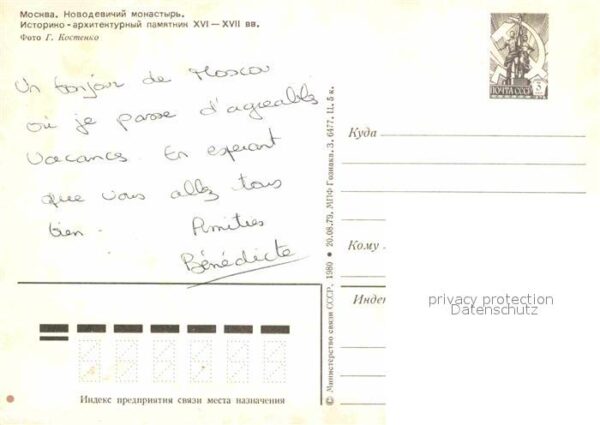 Москва. Новодевичий монастырь.
Историко-архитектурный памятник XVI — XVII вв.
Фото Г. Костенко
Un bonjour de Moscou
où je passe d'agréables
vacances. En espérant
que vous allez tous
bien. Amitiés
Bénédicte
ПОЧТА СССР
3
Куда
Кому
Индек
© Министерство связи СССР, 1980 • 20.08.79. МПФ Гознака. З. 6477. Ц. 5 к.
privacy protection
Datenschutz
Индекс предприятия связи места назначения